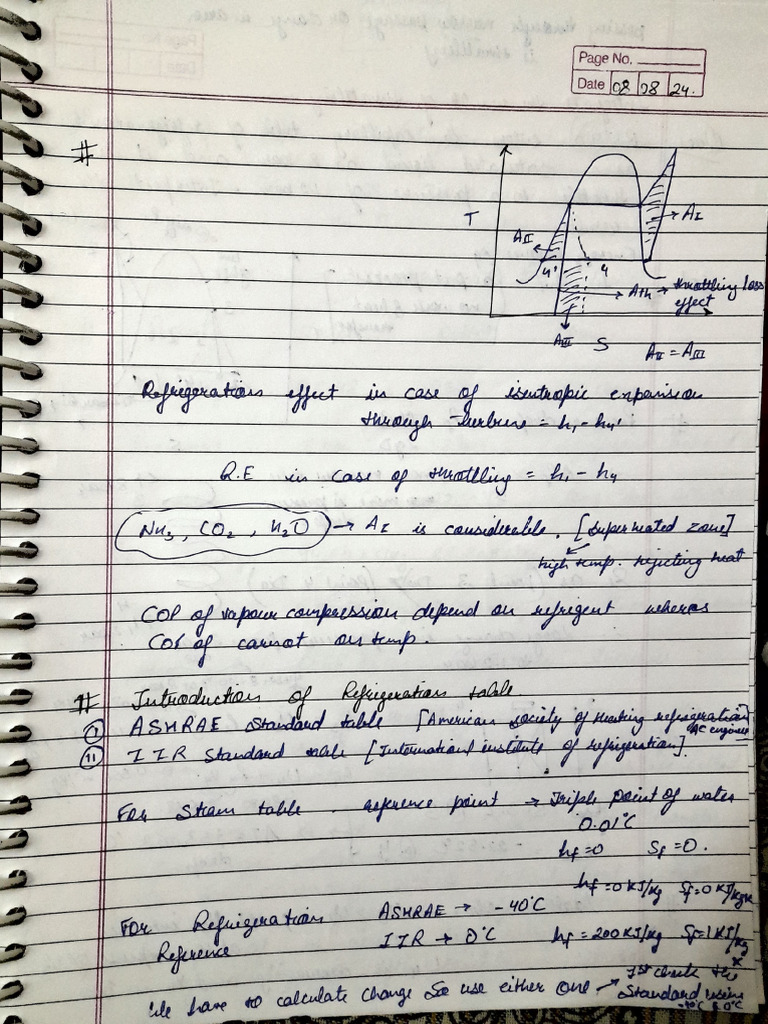 Page No.
Date 08 08 24.
#
T
AI
AII
4'
4
Ath → throttling loss
effect
AIII
S
AII = AIII
Refrigeration effect in case of isentropic expansion
through turbine = h1 - h4'
R.E in case of throttling = h1 - h4
NH3, CO2, H2O → AI is considerable. [superheated zone]
high temp. rejecting heat
COP of vapour compression depend on refrigent whereas
COP of carnot on temp.
# Introduction of Refrigeration table.
(i) ASHRAE Standard table [American society of Heating refrigeration
AC engineer]
(ii) IIR Standard table [International institute of refrigeration].
For Steam table reference point → Triple point of water
0.01°C
hf = 0 Sf = 0.
hf = 0 KJ/kg Sf = 0 KJ/kgK
For Refrigeration ASHRAE → -40°C
Reference IIR → 0°C hf = 200 KJ/kg Sf = 1 KJ/kg
K
We have to calculate change So use either one → 1st check the
Standard using
-40°C & 0°C